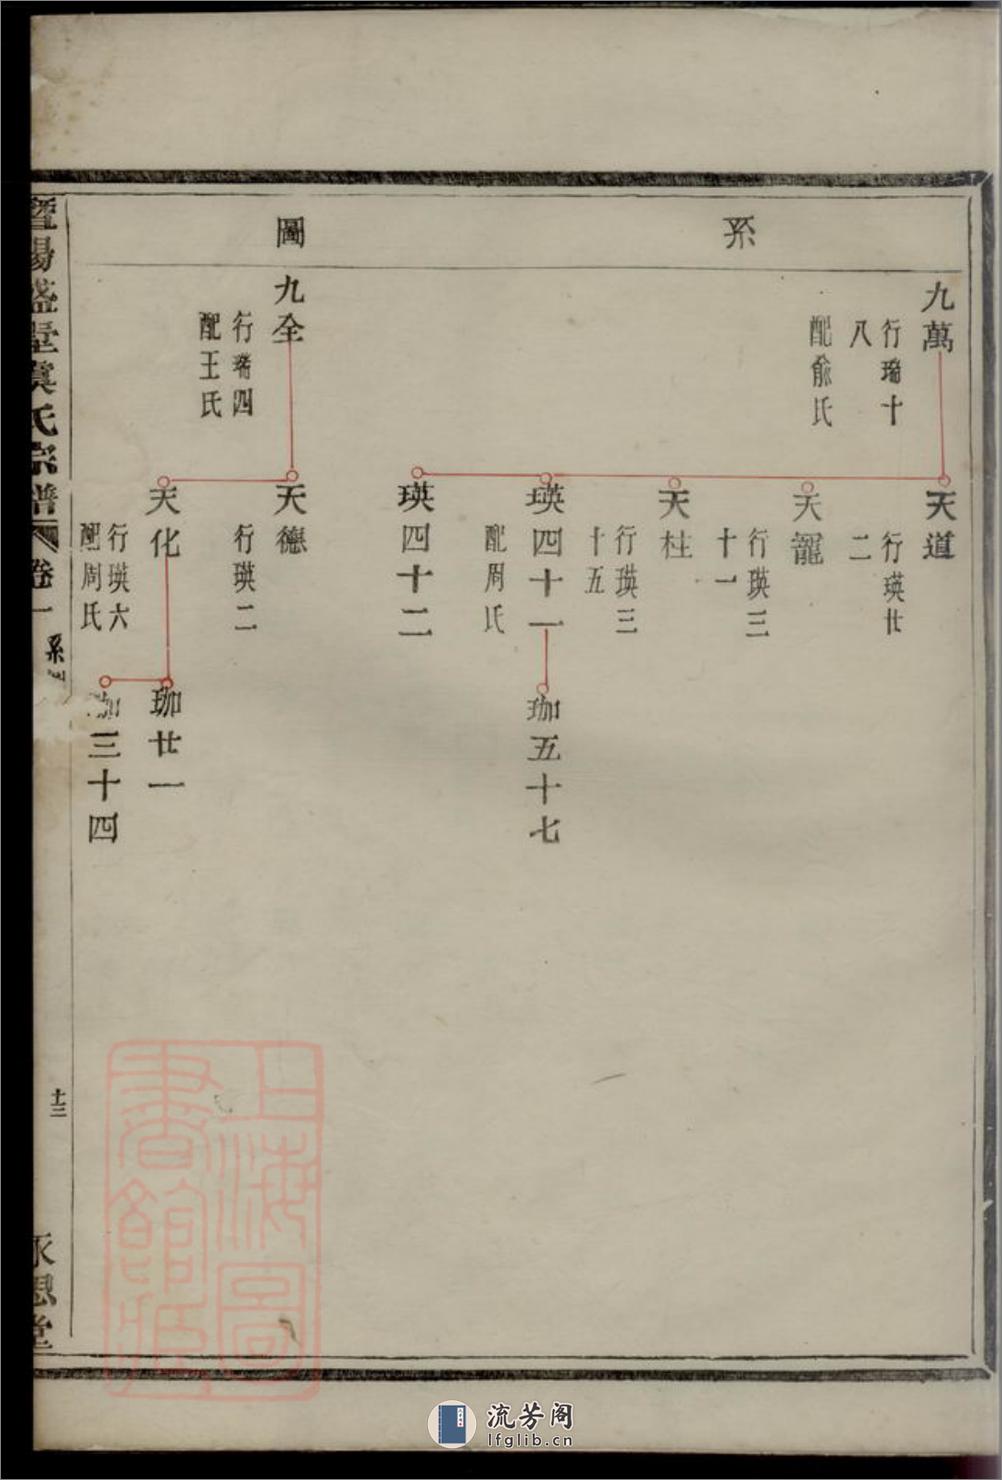 系
圖
九萬
行瑞十
八
配俞氏
天道
行瑛廿
二
天龍
行瑛三
十一
天柱
行瑛三
十五
瑛四十一
配周氏
珈五十七
瑛四十二
九全
行瑞四
配王氏
天德
行瑛二
天化
行瑛六
配周氏
珈廿一
珈三十四
暨陽盛里虞氏宗譜
卷一
系
十三
永思堂
上海圖
書館藏
流芳阁
lfglib.cn